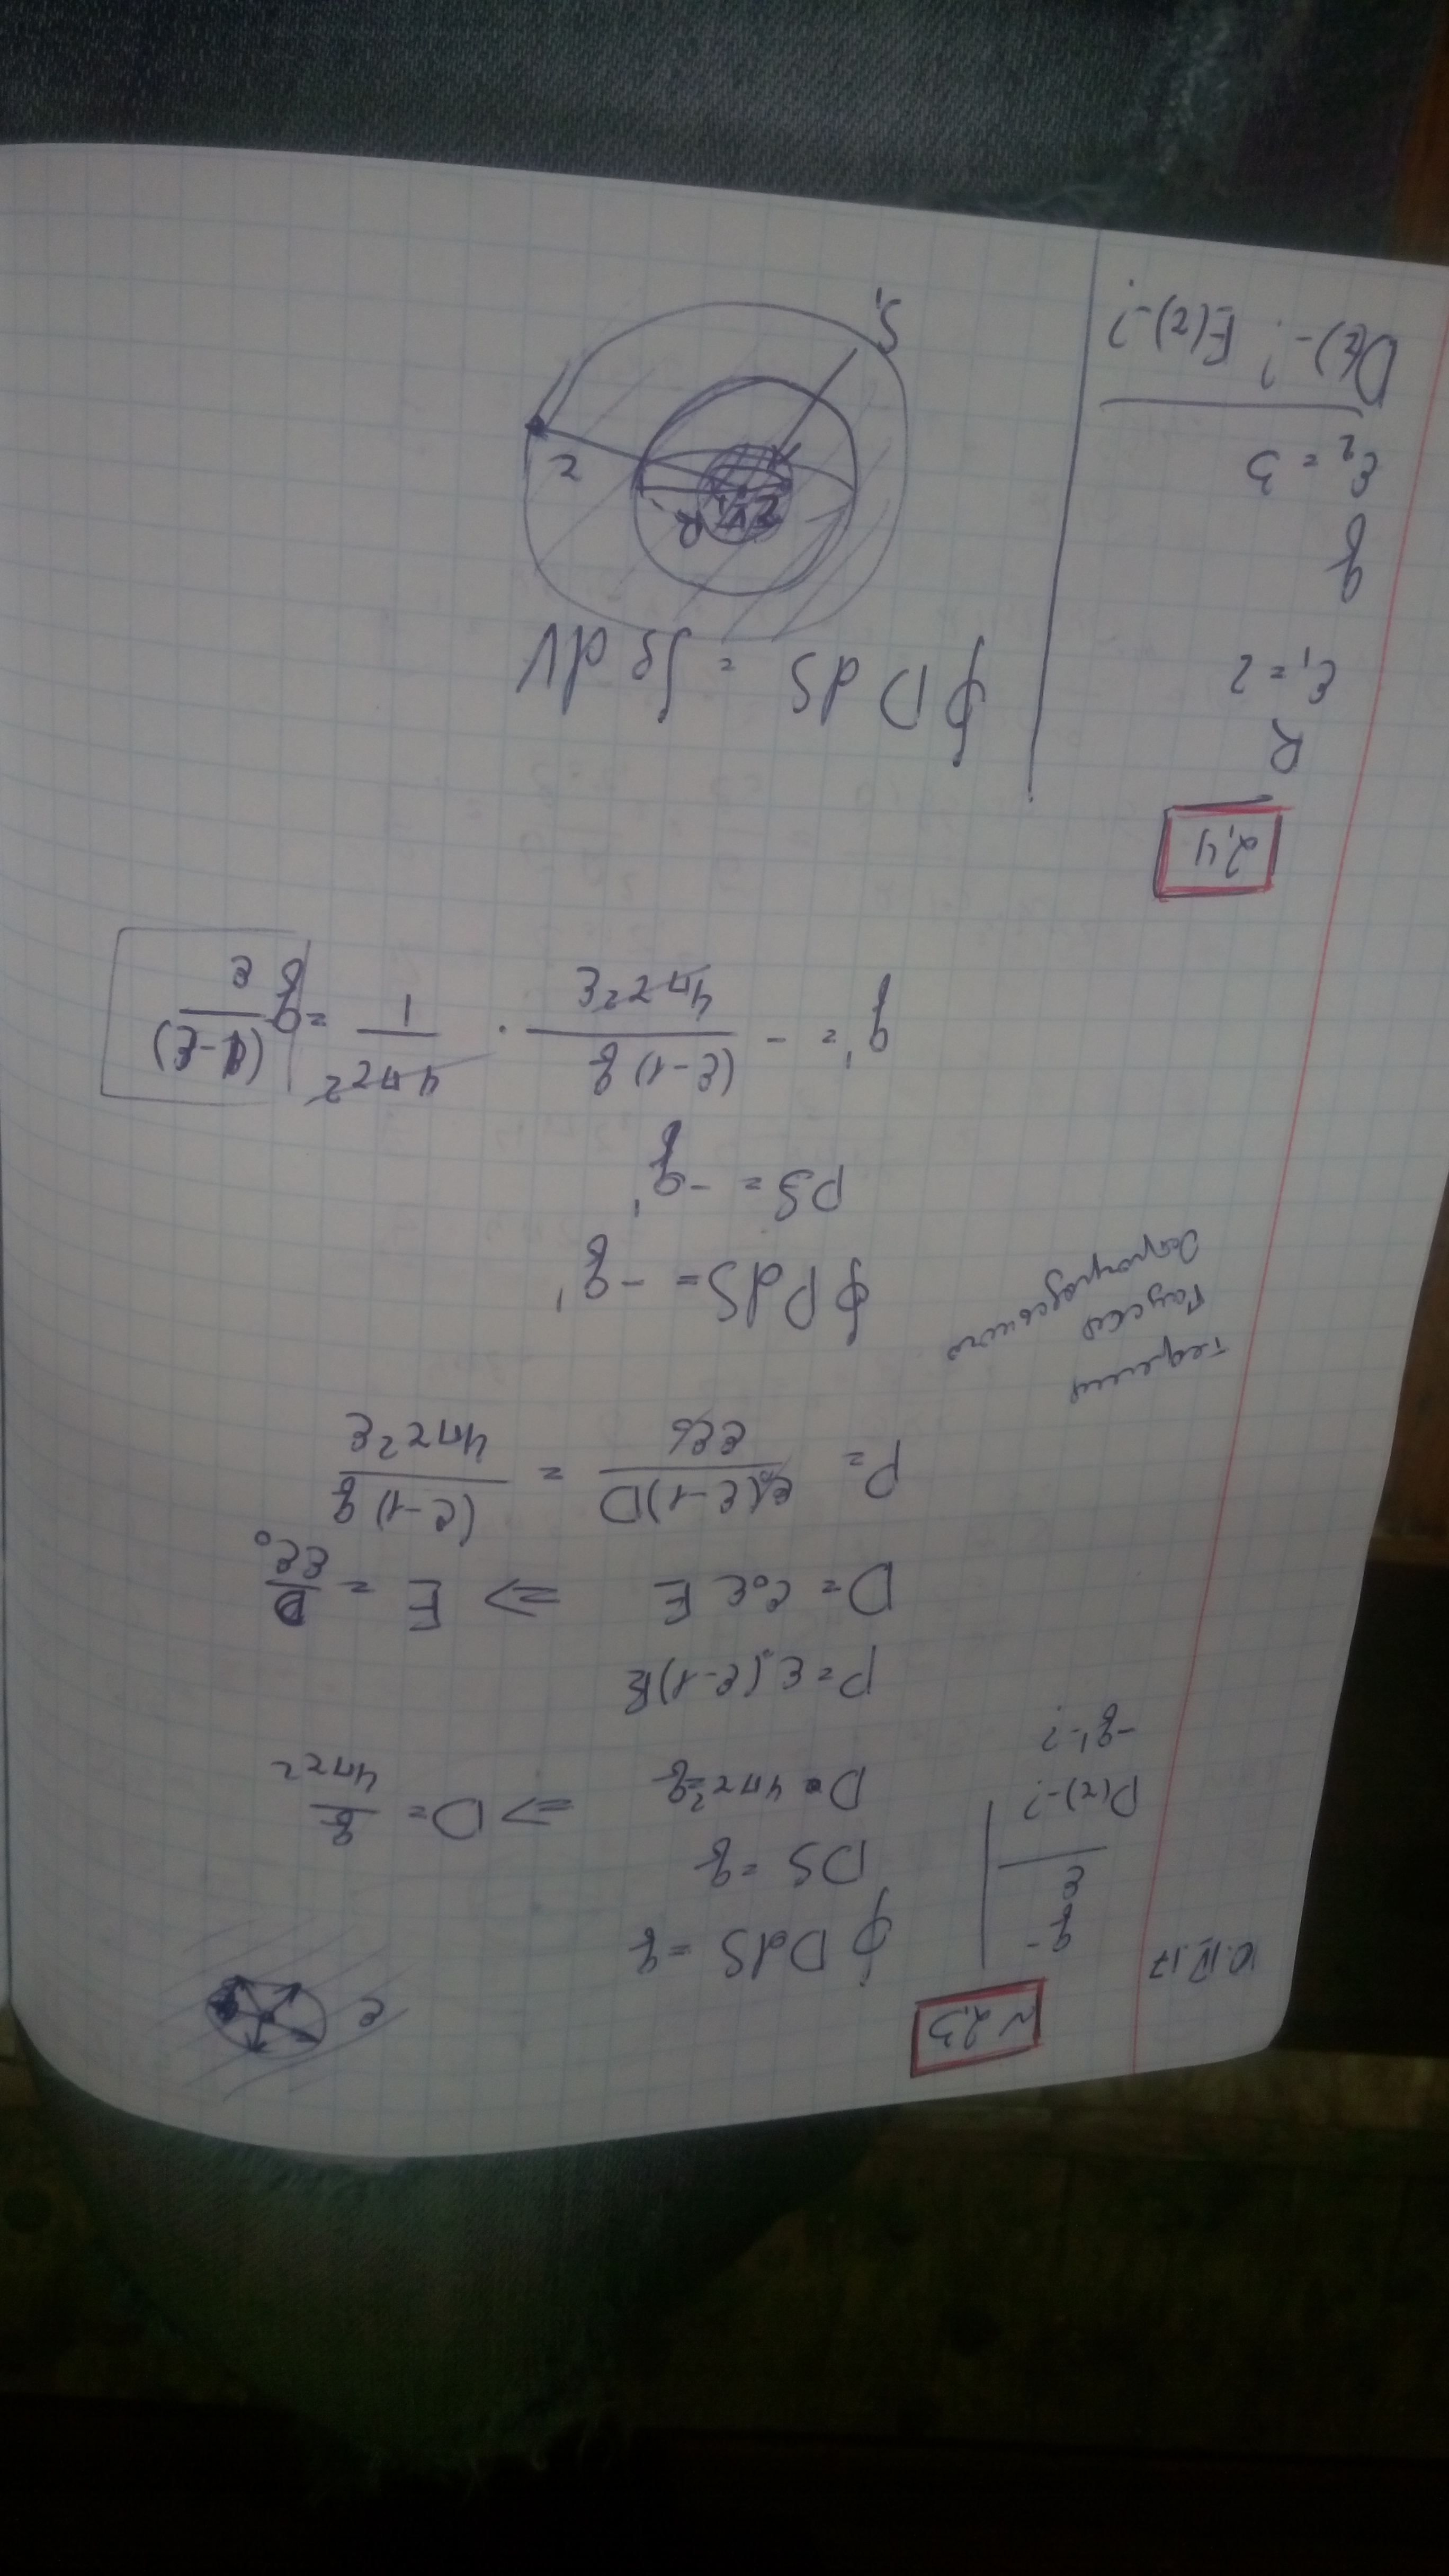 10.12.17
№ 2,3
q -
ε
P(r) - ?
- q' - ?
∮ D dS = q
DS = q
D · 4πr² = q ⇒ D = q/4πr²
ε
P = ε₀(ε-1)E
D = ε₀ε E ⇒ E = D/εε₀
P = ε₀(ε-1)D/εε₀ = (ε-1)q/4πr²ε
Теорема
Гаусса
∮ P dS = -q'
PS = -q'
q' = - (ε-1)q/4πr²ε · 4πr²/1 = q (1-ε)/ε
2,4
R
ε₁ = 2
q
ε₂ = 3
D(r) - ? E(r) - ?
∮ D dS = ∫ρ dV
R
r₁
r
S₁